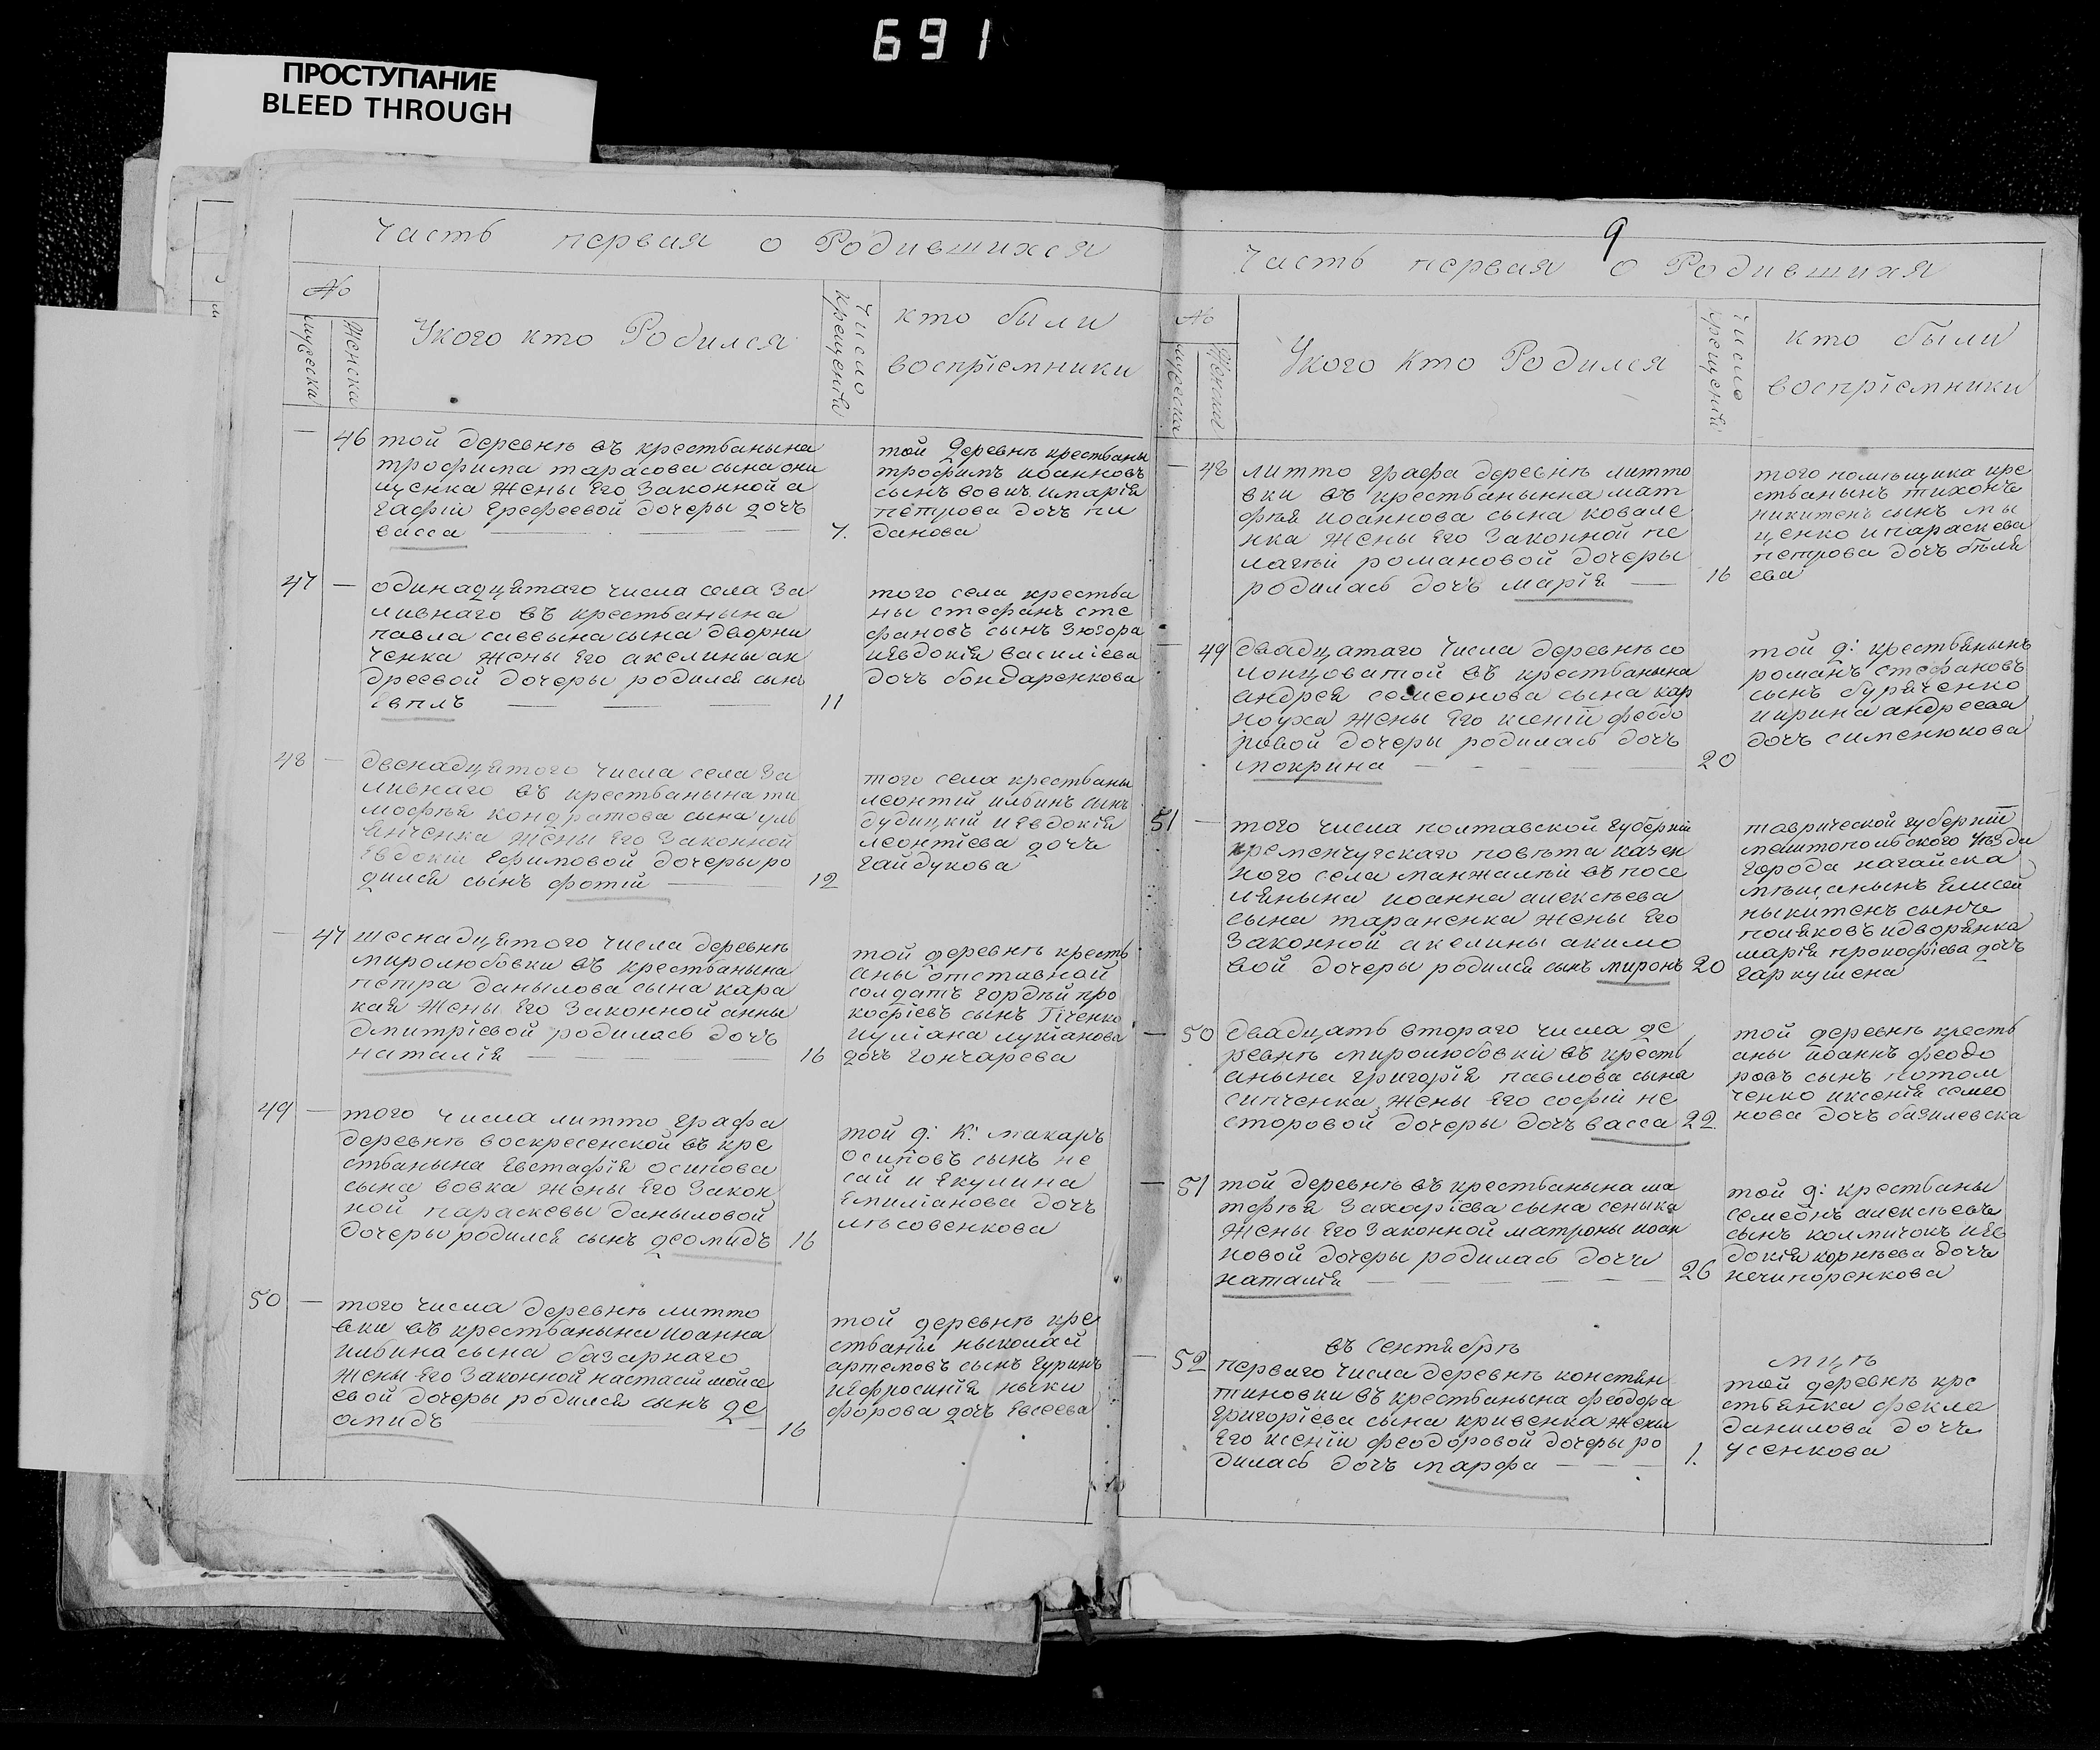 691
ПРОСТУПАНИЕ
BLEED THROUGH
Часть первая о Родившихся
№
мужеска
Женска
Укого кто Родился
Число крещенія
кто были
воспрїемники
46
той деревнѣ въ крестьанына
трофима тарасова сына они
щенка жены Его Законной а
гафіи Ерефеевой дочеры дочъ
васса
7.
той деревнѣ крестьаны
трофимъ иоанновъ
сынъ вовкъ имарїя
петрова дочъ пи
данова
47
одинадцятаго числа села За
ливнаго въ крестьанына
павла саввына сына дворни
ченка жены Его акелины ан
дреевой дочеры родился сынъ
Евплъ
11
того села крестьа
ны стефанъ сте
фановъ сынъ Зюзора
иЕвдокія василїева
дочъ бондаренкова
48
двенадцятого числа села За
ливнаго въ крестьанына ти
мофѣя кондратова сына уль
янченка жены Его Законной
Евдокіи Ефимовой дочеры ро
дился сынъ фотій
12
того села крестьаны
леонтій ильинъ сынъ
дудицкій иЕвдокія
леонтїева дочъ
гайдукова
47
шеснадцятого числа деревнѣ
миролюбовки въ крестьанына
петра данылова сына кара
кая жены Его Законной анны
дмитрїевой родилась дочъ
наталїя
16
той деревнѣ кресть
аны отставной
солдатъ гордѣй про
кофїевъ сынъ Гїченко
иулїана лукїанова
дочъ гончарева
49
того числа литто графа
деревнѣ воскресенской въ кре
стьанына Евстафїя осипова
сына вовка жены Его Закон
ной параскевы даныловой
дочеры родился сынъ деомидъ
16
той д: К: макаръ
осиповъ сынъ не
сай и Якулина
Емилїанова дочъ
лѣсовенкова
50
того числа деревнѣ литто
вки въ крестьанына иоанна
ильина сына базарнаго
жены Его Законной настасіи мойсе
евой дочеры родился сынъ де
омидъ
16
той деревнѣ кре
стьаны ныколай
артемовъ сынъ гуринъ
иЕфросинїя ныки
форова дочъ Евсеева
9
Часть первая о Родившихя
№
мужеска
Женска
Укого Кто Родился
Число крещенія
кто были
воспрїемники
48
литто графа деревнѣ литто
вки въ крестьанынна мат
фѣя иоаннова сына ковале
нка жены Его Законной пе
лагѣи романовой дочеры
родилась дочъ марїя
16
того помѣщика кре
стьанынъ тихонъ
никитенъ сынъ мы
ценко и параскева
петрова дочъ бѣля
ева
49
двадцатаго числа деревнѣ со
лонцоватой въ крестьанына
андрея семсонова сына кар
ноуха жены Его ксеніи феодо
ровой дочеры родилась дочъ
мокрина
20
той д: крестьянынъ
романъ стефановъ
сынъ буряченко
иирина андреева
дочъ сименюкова
51
того числа полтавской губерніи
кременчугскаго повѣта казен
ного села манжалѣи въ посе
лянына иоанна алексѣева
сына тараненка жены Его
Законной акелины акимо
вой дочеры родился сынъ миронъ
20
таврической губерніи
мелитопольского уѣзда
города нагайска
мѣщанынъ Елисей
ныкитенъ сынъ
поляковъ идворянка
марїя прокофїева дочъ
гаркушена
50
двадцать второго числа де
ревнѣ миролюбовкі въ кресть
анына григорїя павлова сына
сипченка, жены Его софіи не
сторовой дочеры дочъ васса
22
той деревнѣ кресть
аны иоаннъ феодо
ровъ сынъ потом
ченко иксенїя семео
нова дочъ базилевска
51
той деревнѣ въ крестьанына ма
тѳѣя Захарїева сына сеныка
жены Его Законной матроны иоан
новой дочеры родилась дочъ
наталїя
26
той д: крестьаны
семеонъ алексѣевъ
сынъ колмичокъ иЕв
докїя корнѣева дочъ
нечипоренкова
въ сентябрѣ
мцѣ
52
перваго числа деревнѣ констян
тиновки въ крестьанына феодора
григорїева сына кривенка жены
Его ксенїи феодоровой дочеры ро
дилась дочъ марфа
1.
той деревнѣ кре
стьянка фекла
данилова дочъ
усенкова